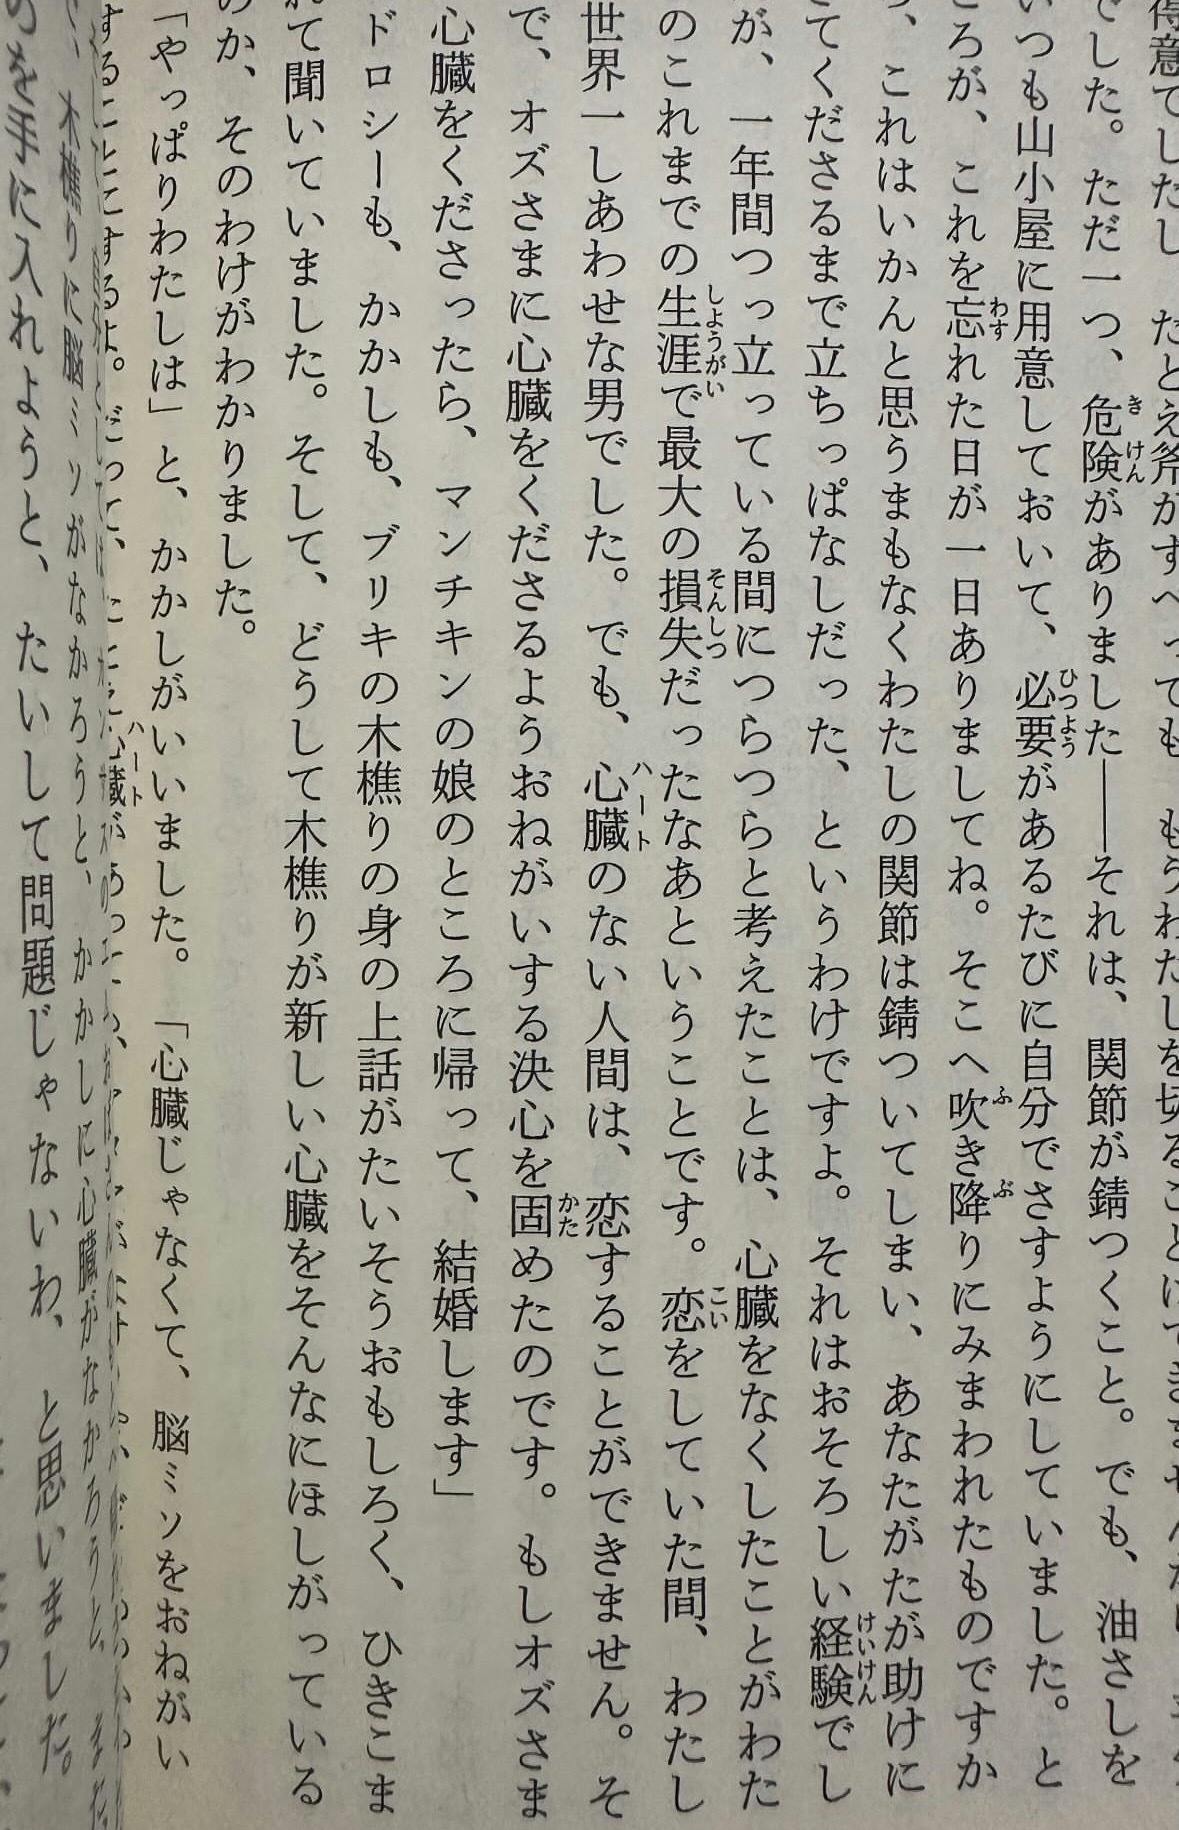 得意でしたし　たとえ斧がすべっても　もうわたしを切ることはできません
でした。ただ一つ、危険がありました――それは、関節が錆つくこと。でも、油さしを
いつも山小屋に用意しておいて、必要があるたびに自分でさすようにしていました。と
ころが、これを忘れた日が一日ありましてね。そこへ吹き降りにみまわれたものですか
、これはいかんと思うまもなくわたしの関節は錆ついてしまい、あなたがたが助けに
てくださるまで立ちっぱなしだった、というわけですよ。それはおそろしい経験でし
が、一年間つっ立っている間につらつらと考えたことは、心臓をなくしたことがわた
のこれまでの生涯で最大の損失だったなあということです。恋をしていた間、わたし
世界一しあわせな男でした。でも、心臓のない人間は、恋することができません。そ
で、オズさまに心臓をくださるようおねがいする決心を固めたのです。もしオズさま
心臓をくださったら、マンチキンの娘のところに帰って、結婚します」
ドロシーも、かかしも、ブリキの木樵りの身の上話がたいそうおもしろく、ひきこま
れて聞いていました。そして、どうして木樵りが新しい心臓をそんなにほしがっている
のか、そのわけがわかりました。
「やっぱりわたしは」と、かかしがいいました。「心臓じゃなくて、脳ミソをおねがい
することにするよ。だって、
木樵りに脳ミソがなかろうと、かかしに心臓がなかろうと、また
を手に入れようと、たいして問題じゃないわ、と思いました。